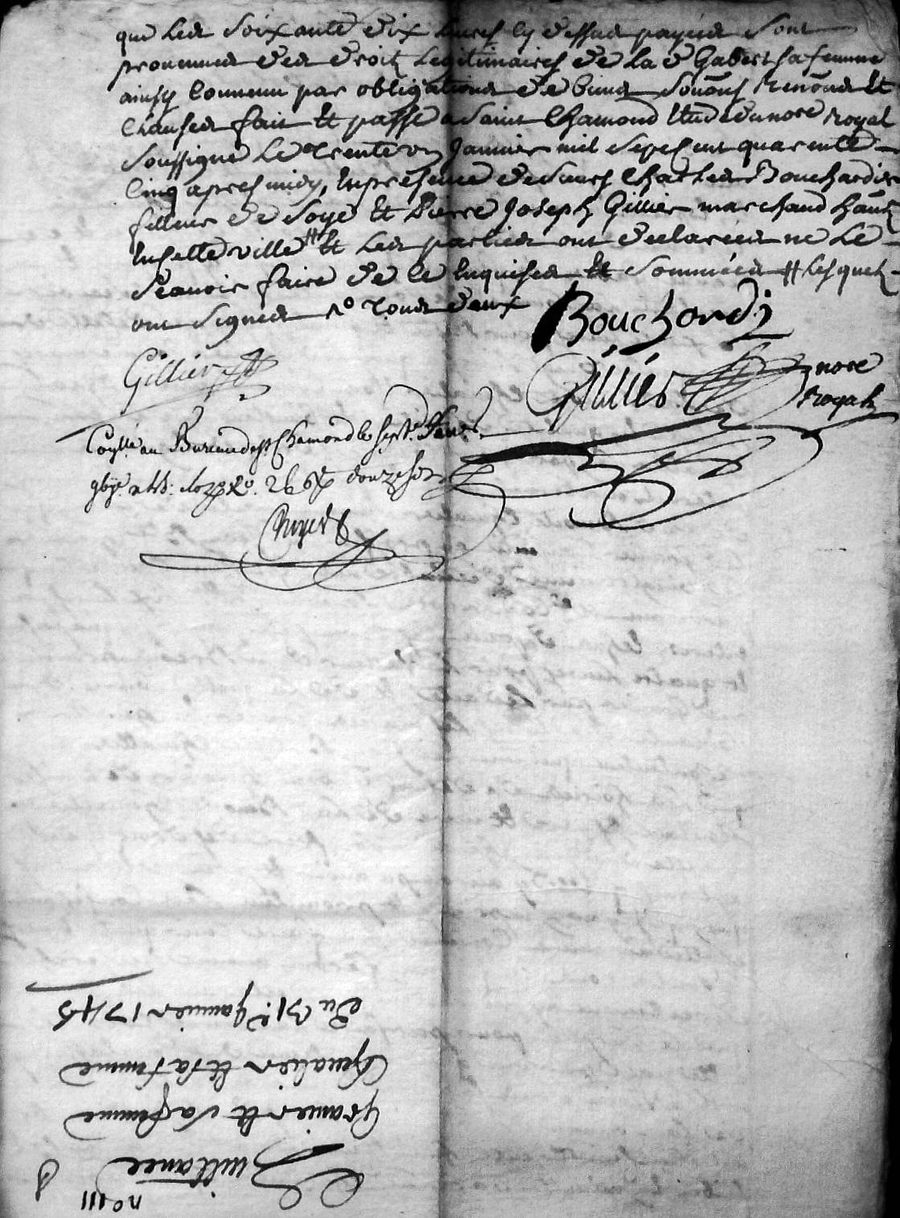 que les soixante dix livres cy dessus payées sont
provenues des droits legitimaires de la d Gabert sa femme
ainsy convenu par obligations de biens soums renons et
clauses fait et passé a Saint Chamond etude du nore royal
soussigné le trente un janvier mil sept cent quarente
cinq apres midy, en presence de sieurs Charles Bouchardi
filleur de soye et Pierre Joseph Gillier marchand hants
en cette ville # et les parties ont declarées ne le
sçavoir faire de ce enquises et sommées # lesquels
ont signés
Bouchardi
Gillier
Gillier nore
royal
au Bureau de St Chamond le sept
douze sols
Quittance
Granier et sa femme
Chevalier et sa femme
Du 31e janvier 1745